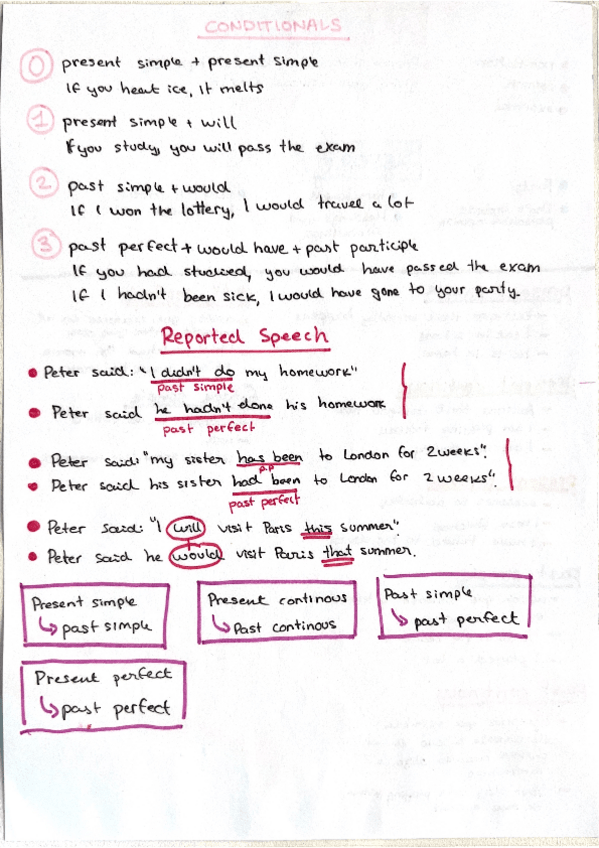 CONDITIONALS
0 present simple + present simple
If you heat ice, it melts
1 present simple + will
If you study, you will pass the exam
2 past simple + would
If I won the lottery, I would travel a lot
3 past perfect + would have + past participle
If you had studied, you would have passed the exam
If I hadn't been sick, I would have gone to your party.
Reported Speech
• Peter said: "I didn't do my homework"
past simple
• Peter said he hadn't done his homework
past perfect
• Peter said: "my sister has been to London for 2 weeks".
p.p
• Peter said his sister had been to London for 2 weeks".
past perfect
• Peter said: "I will visit Paris this summer"
• Peter said he would visit Paris that summer.
Present simple
↳ past simple
Present continous
↳ Past continous
Past simple
↳ past perfect
Present perfect
↳ past perfect